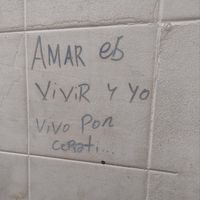 AMAR es
ViViR y yo
vivo Por
cerati...